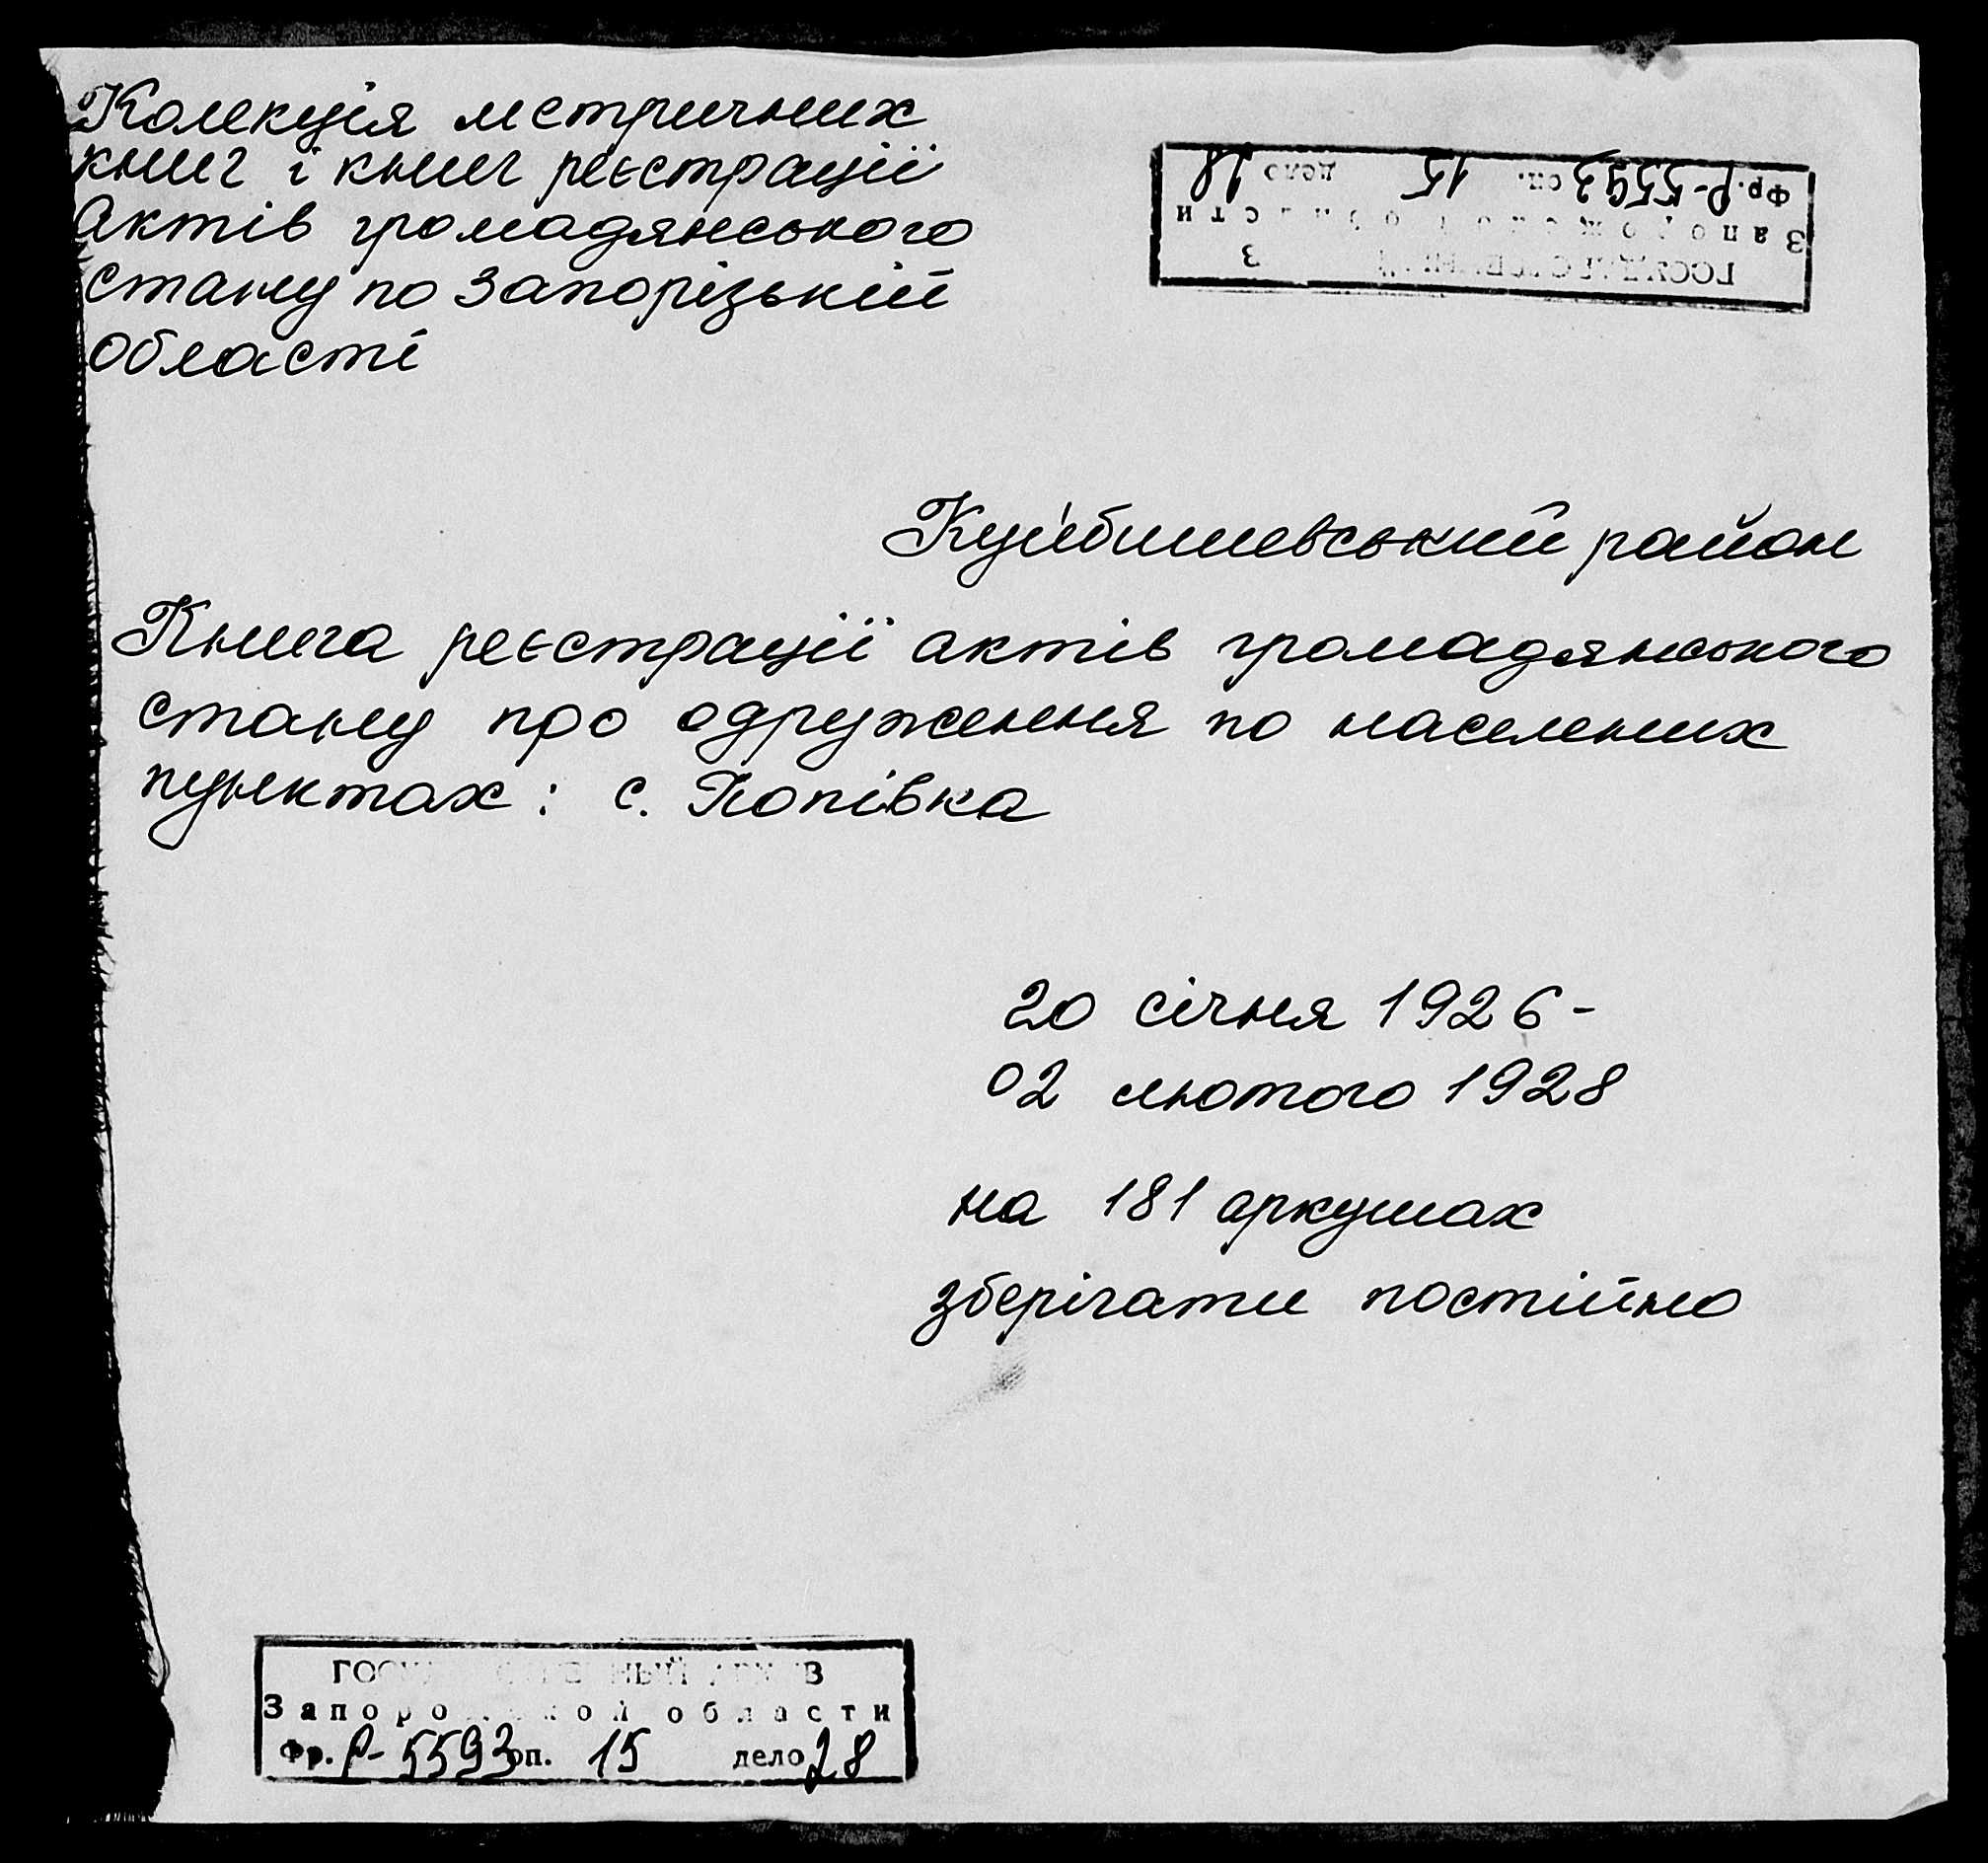 Колекція метричних
книг і книг реєстрації
актів громадянського
стану по Запорізькій
області
Фр. Р-5593 оп. 15 дело 28
Запорожской области
Куйбишевський район
Книга реєстрації актів громадянського
стану про одруження по населених
пунктах: с. Попівка
20 січня 1926-
02 лютого 1928
на 181 аркушах
зберігати постійно
ГОСУДАРСТВЕННЫЙ АРХИВ
Запорожской области
Фр. Р-5593 оп. 15 дело 28